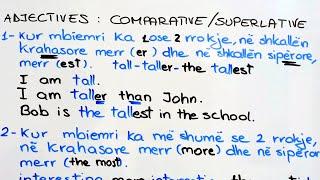 ADJECTIVES : COMPARATIVE/SUPERLATIVE
1- Kur mbiemri ka 1 ose 2 rrokje, në shkallën
krahasore merr (er) dhe në shkallën sipërore,
merr (est). tall-taller-the tallest
I am tall.
I am taller than John.
Bob is the tallest in the school.
2- Kur mbiemri ka më shumë se 2 rrokje,
në krahasore merr (more) dhe në sipërore
merr (the most).
interesting more interesting the